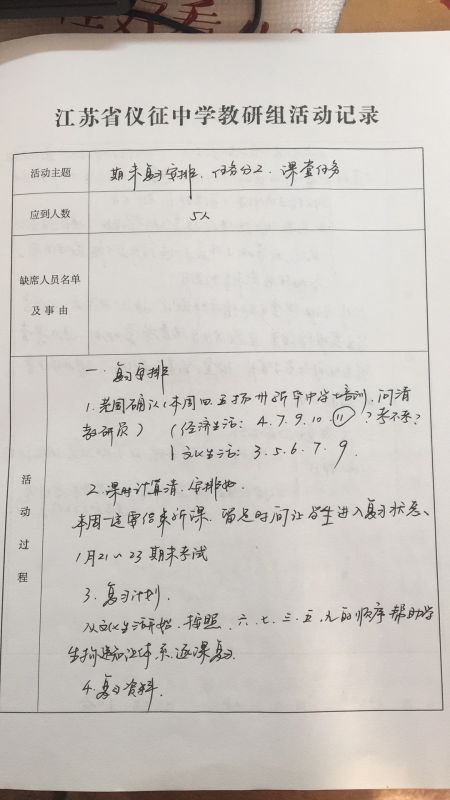 江苏省仪征中学教研组活动记录
活动主题
期末复习安排、任务分工、课堂任务
应到人数
5人
缺席人员名单
及事由
活动过程
一、复习安排
1. 老周确认(本周四、五扬州邗中学培训,问清
教研员) (经济生活: 4.7.9.10.⑪ ?考不考?
文化生活: 3.5.6.7.9.
2. 课时计算清、安排好
本周一定要结束新课、留足时间让学生进入复习状态、
1月21~23 期末考试
3. 复习计划.
从文化生活开始、按照、六、七、三、五、九的顺序帮助学
生构建知识体系、逐课复习.
4. 复习资料.